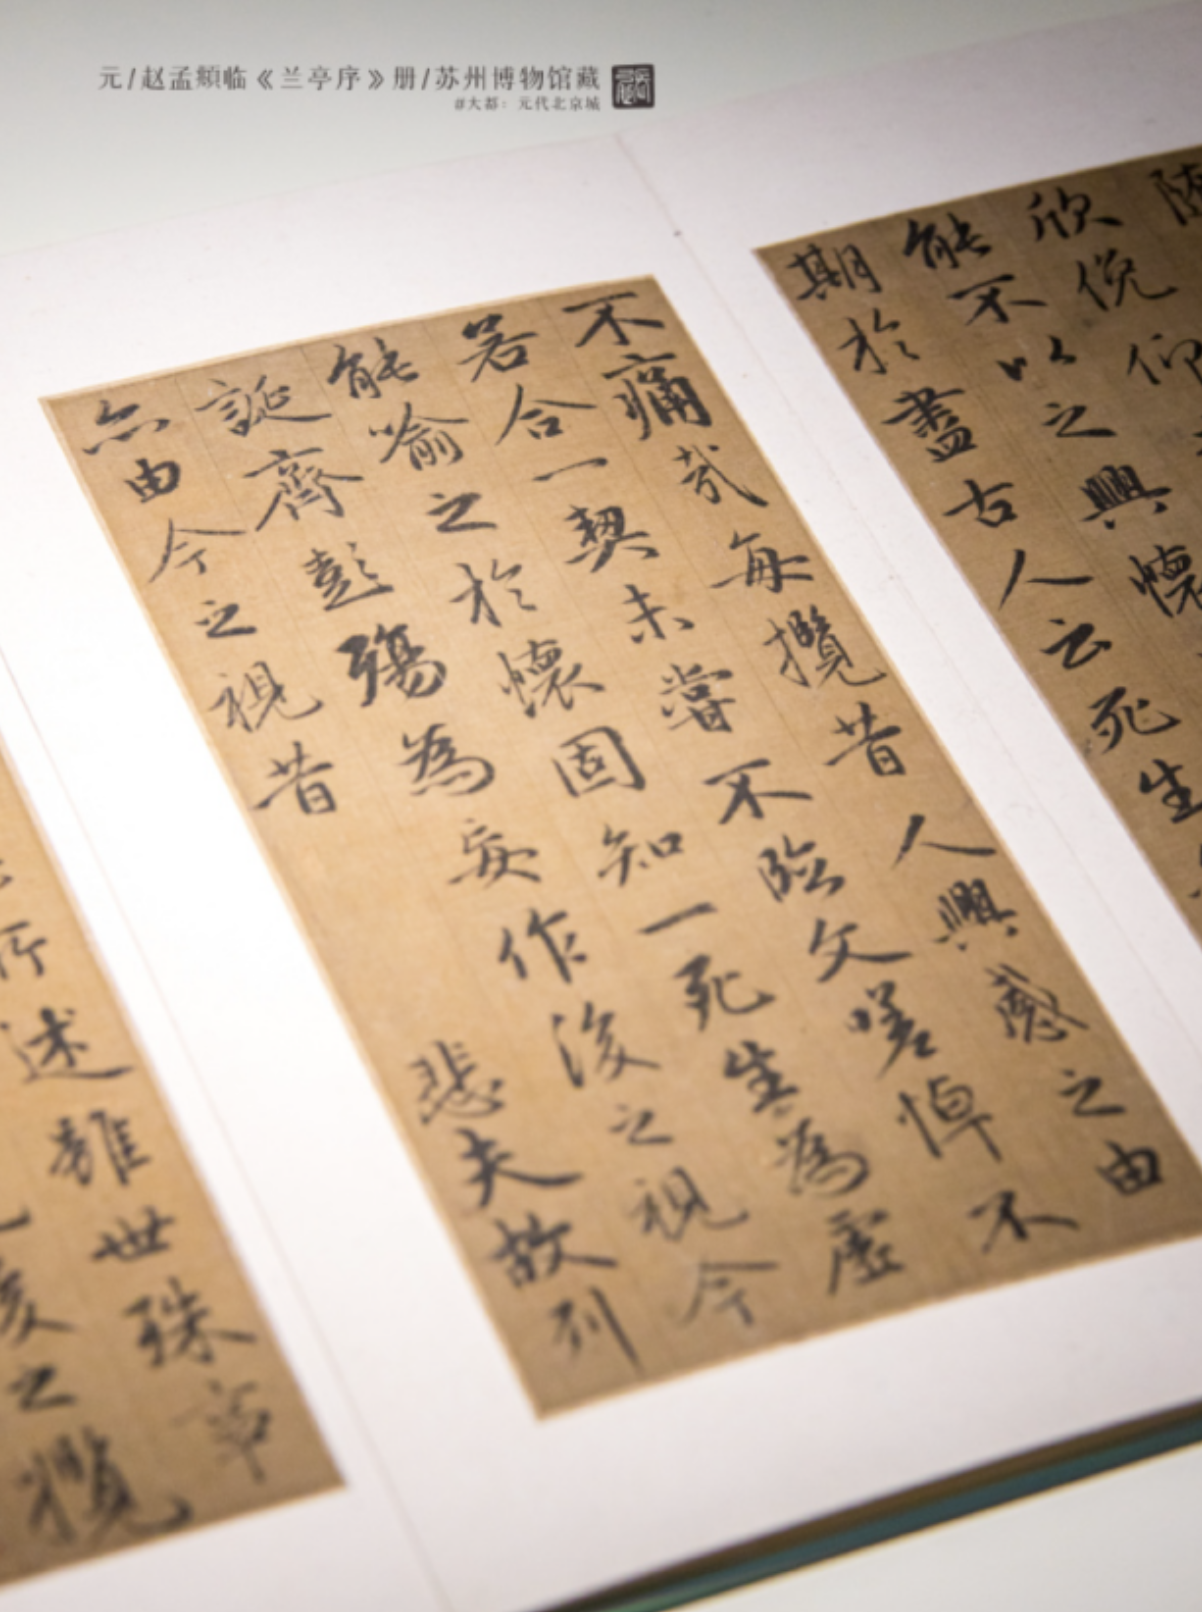 元/赵孟頫临《兰亭序》册/苏州博物馆藏
#大都：元代北京城
欣俛仰
能不以之興懷
期於盡古人云死生
不痛哉每攬昔人興感之由
若合一契未嘗不臨文嗟悼不
能喻之於懷固知一死生為虛
誕齊彭殤為妄作後之視今
亦由今之視昔 悲夫故列
所述雖世殊事
後之攬